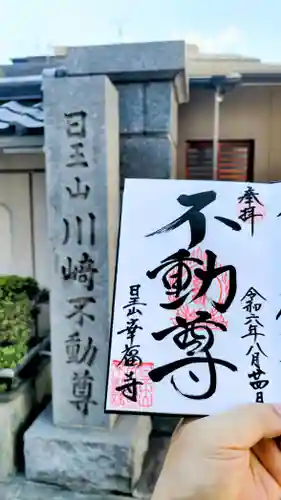 日王山川崎不動尊
奉拝
令和六年八月廿四日
不動尊
日王山幸福寺